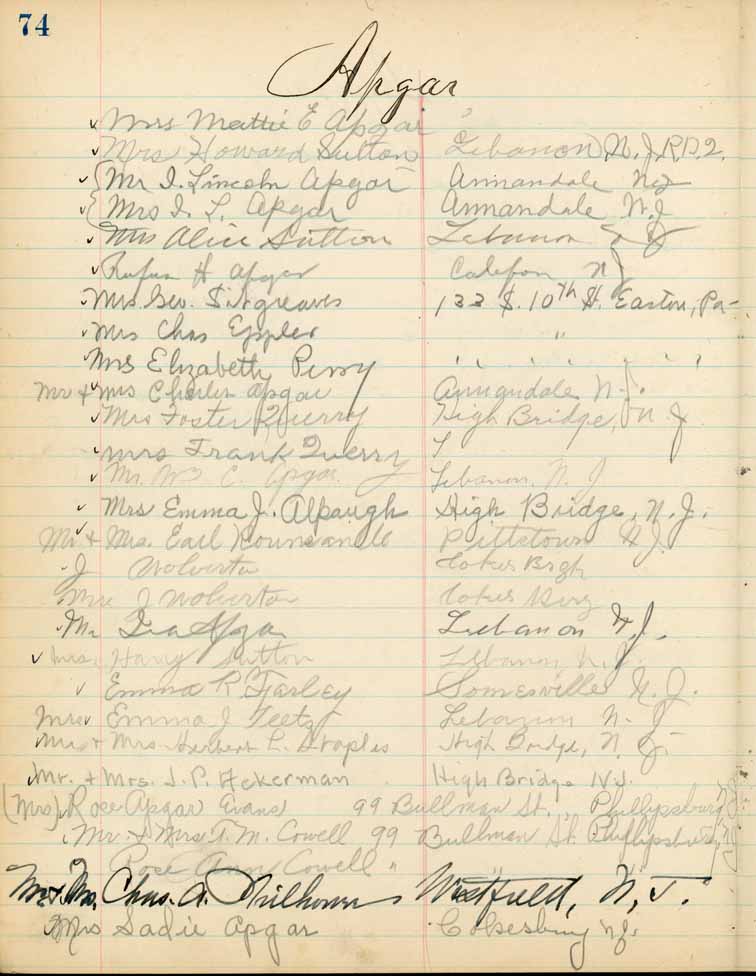 74
Apgar
Mrs Mattie E Apgar "
Mrs Howard Sutton Lebanon, N. J. R.D.2.
Mr I. Lincoln Apgar Annandale NJ
Mrs I. L. Apgar Annandale N.J
Mrs Alice Sutton Lebanon N J
Rufus H Apgar Califon N J
Mrs Geo. S. 133 S. 10th St. Easton, Pa-
Mrs Chas Eppler "
Mrs Elizabeth Perry " " " " "
Mr & Mrs Charles Apgar Annandale N.J.
Mrs Foster Querry High Bridge, N. J
Mrs Frank Querry
Mr. Wm C. Apgar Lebanon, N. J
Mrs Emma J. Alpaugh High Bridge, N. J.
Mr & Mrs. Earl Rounsavell Pittstown N.J.
J Wolverton
Mrs J Wolverton
Mr Ira Apgar Lebanon N.J.
Mrs. Harry Sutton Lebanon, N. J.
Emma R. Farley Somerville N. J.
Mrs Emma J Teetz Lebanon N. J
Mr & Mrs Herbert L. Staples High Bridge, N. J.
Mr. & Mrs. J. P. Ackerman High Bridge N.J.
(Mrs) Rose Apgar Evans 99 Bullman St., Phillipsburg, N.J.
Mr. & Mrs T. M. Cowell 99 Bullman St. Phillipsburg, N.J.
Rose Ann Cowell "
Mr & Mrs. Chas. A. Westfield, N. J.
Mrs Sadie Apgar Cokesbury NJ.